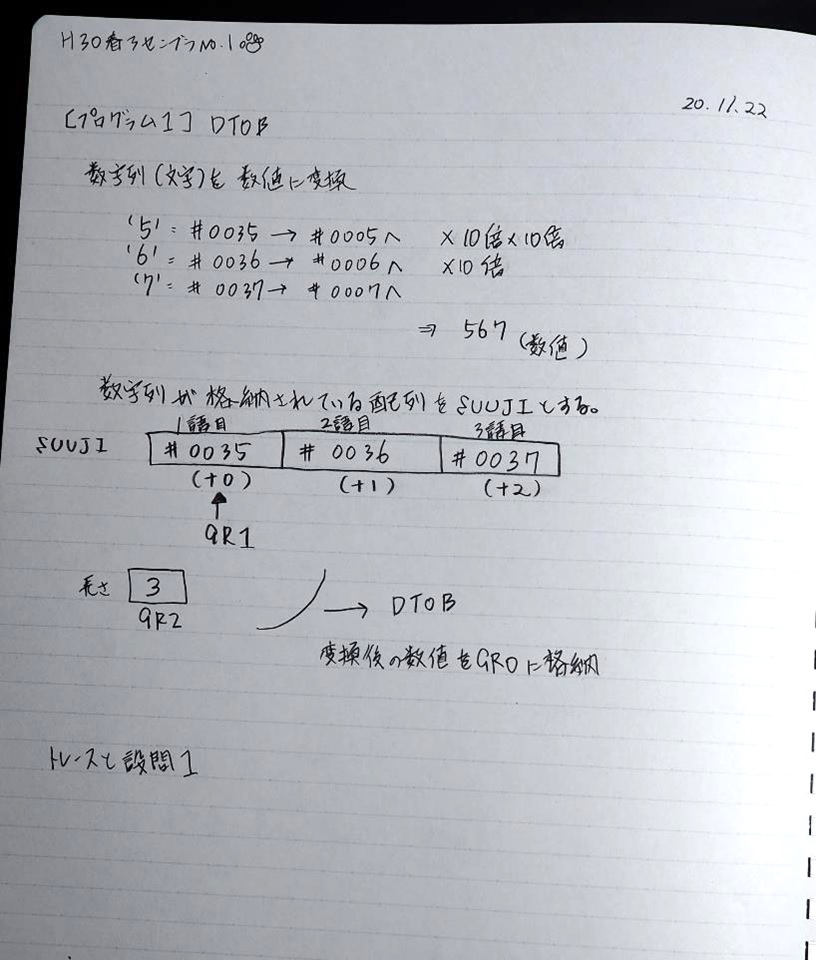 H30春アセンブラNo.1
20.11.22
[プログラム1] DTOB
数字列(文字)を数値に変換
'5' = #0035 → #0005へ ×10倍×10倍
'6' = #0036 → #0006へ ×10倍
'7' = #0037 → #0007へ
⇒ 567 (数値)
数字列が格納されている配列をSUUJIとする。
1語目 2語目 3語目
SUUJI #0035 #0036 #0037
(+0) (+1) (+2)
GR1
長さ 3 → DTOB
GR2
変換後の数値をGR0に格納
トレースと設問1